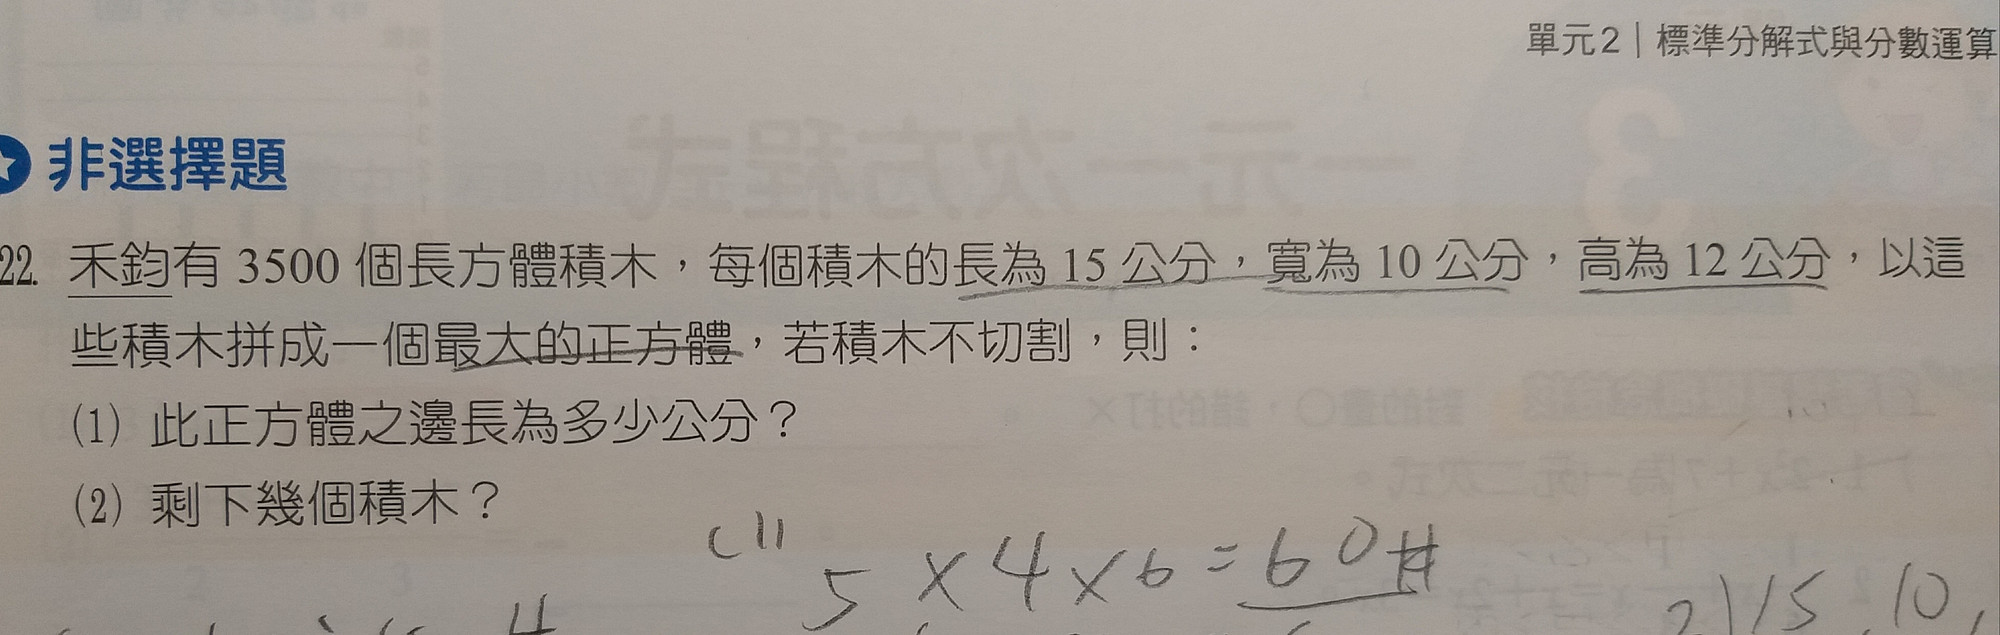 單元2｜標準分解式與分數運算
非選擇題
22. 禾鈞有 3500 個長方體積木，每個積木的長為 15 公分，寬為 10 公分，高為 12 公分，以這
些積木拼成一個最大的正方體，若積木不切割，則：
(1) 此正方體之邊長為多少公分？
(2) 剩下幾個積木？
(1) 5×4×6=60#
2)15, 10,